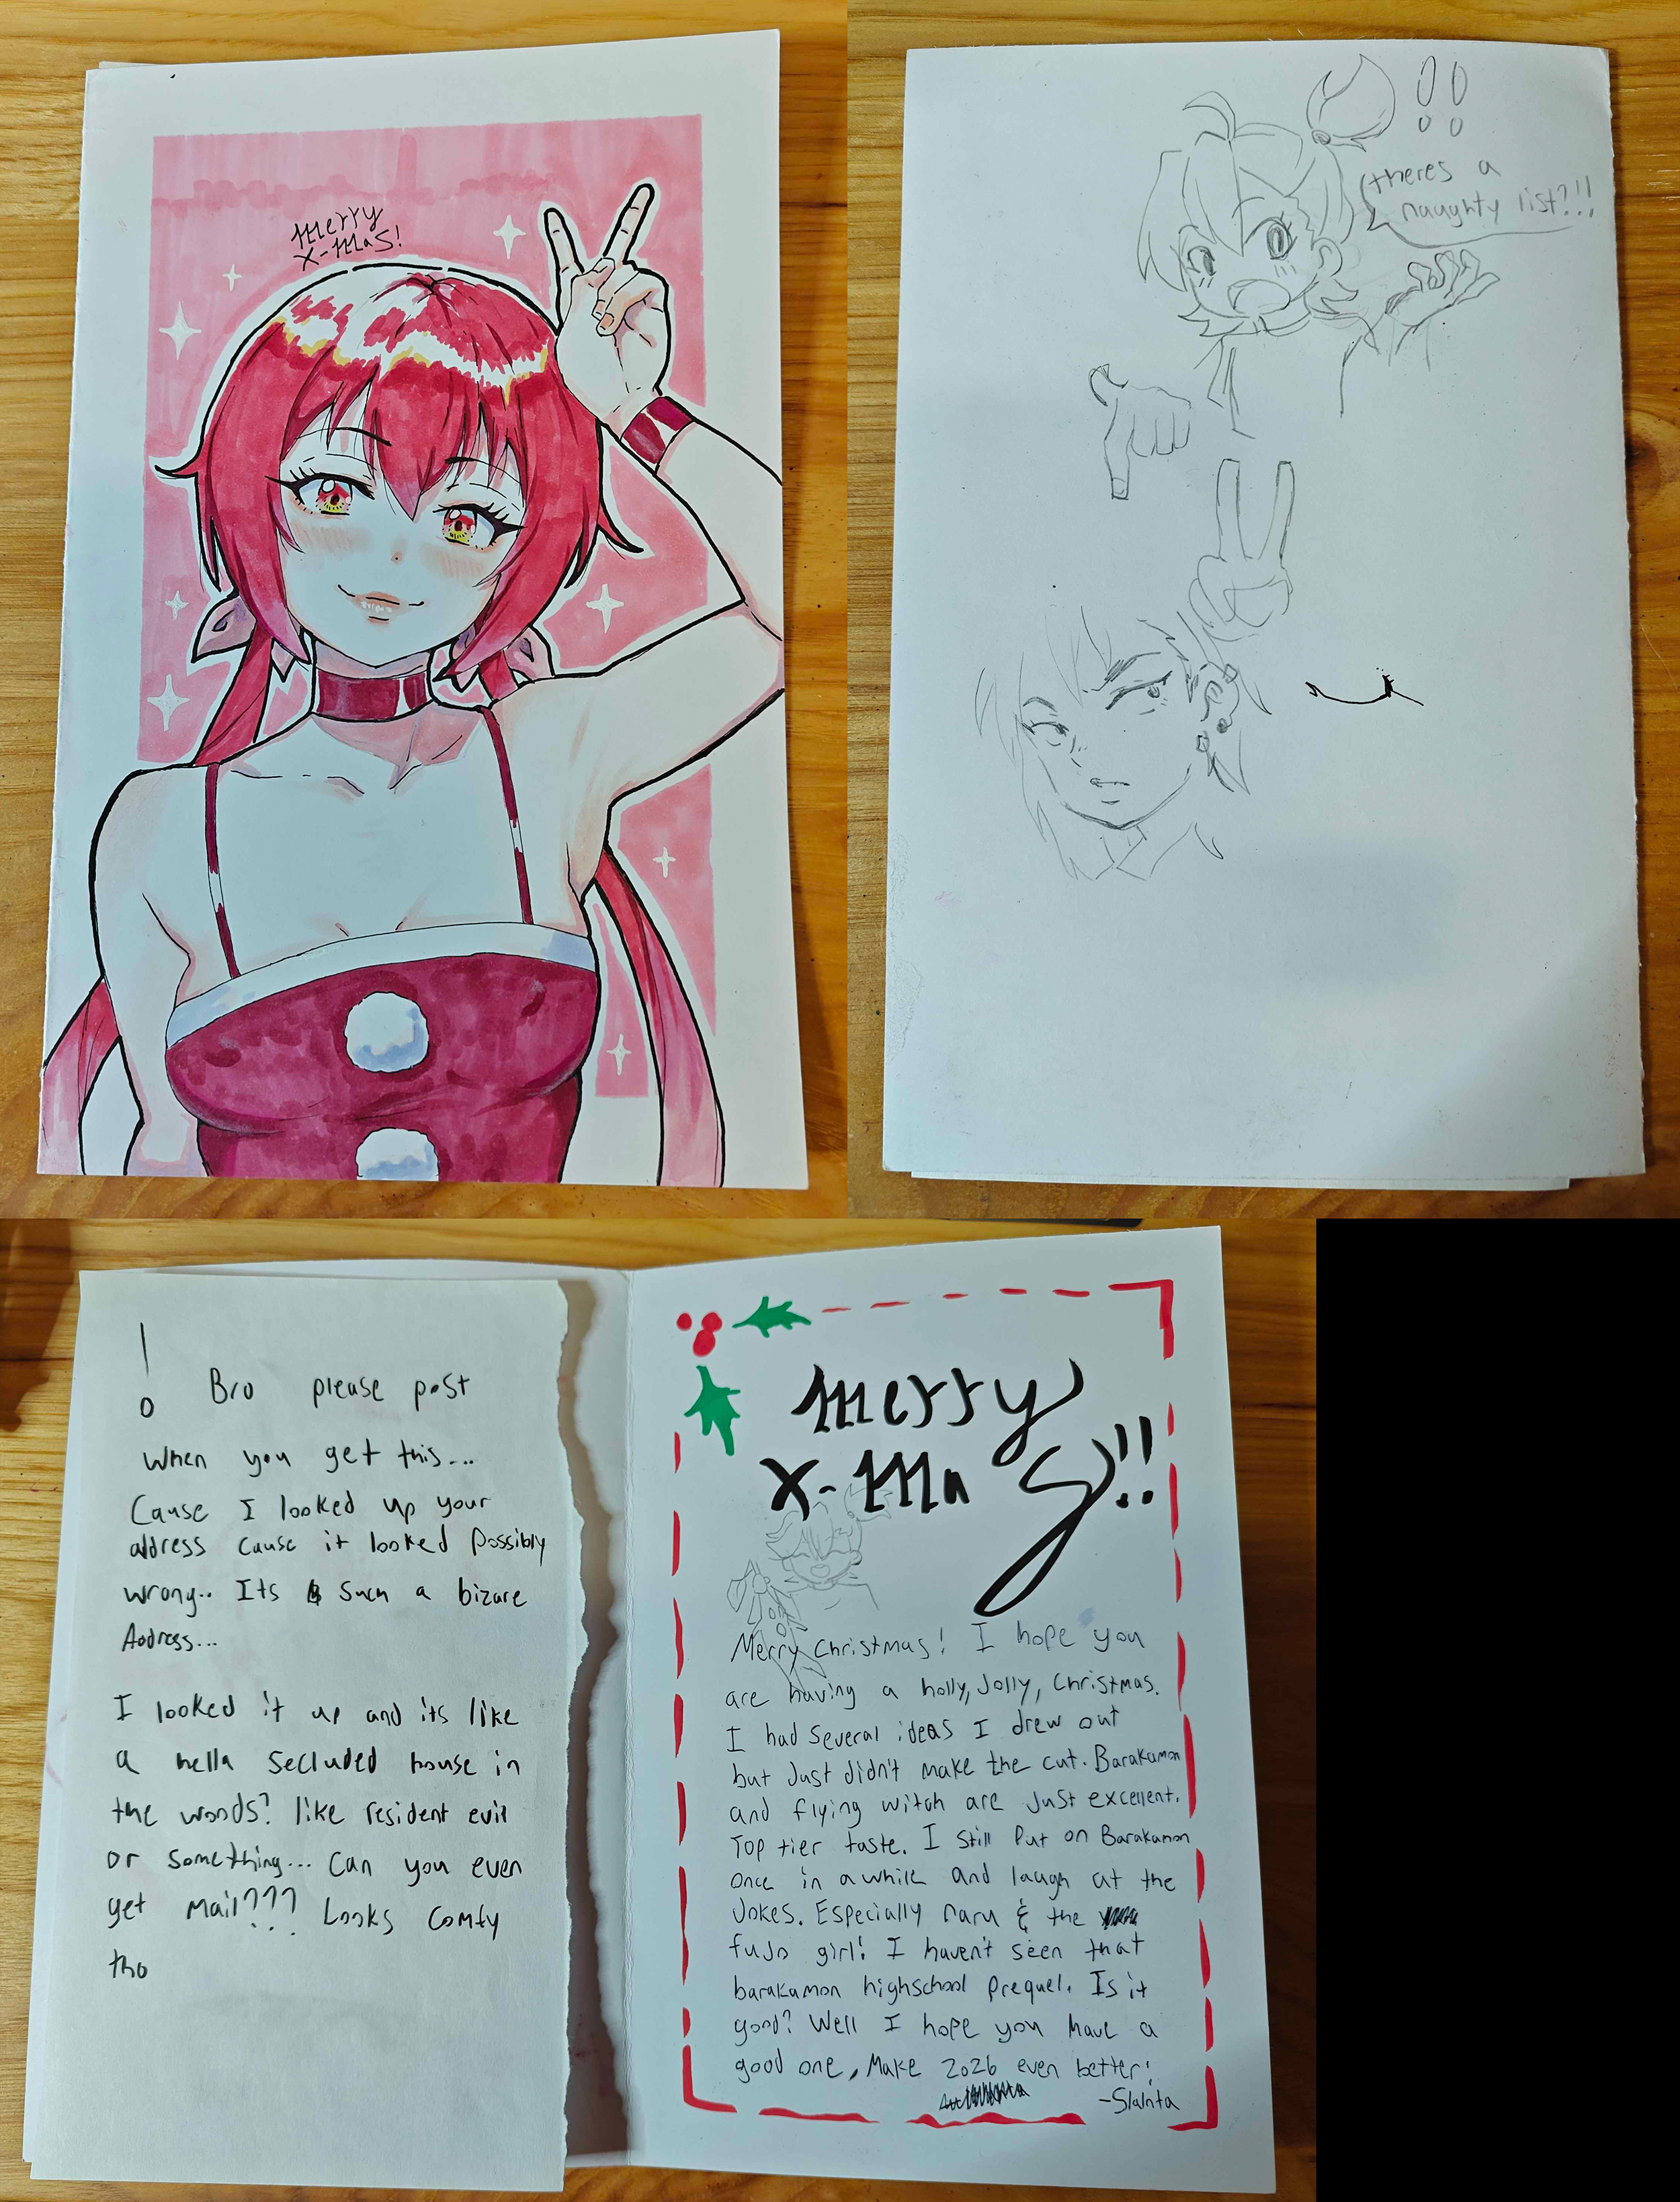 Merry
X-Mas!
!!
theres a
naughty list?!!
! Bro please post
When you get this...
Cause I looked up your
address cause it looked possibly
wrong.. Its such a bizare
Address...
I looked it up and its like
a hella secluded house in
the woods? like resident evil
or something... Can you even
get mail??? Looks comfy
tho
Merry
X-Mas!!
Merry Christmas! I hope you
are having a holly, Jolly, Christmas.
I had several ideas I drew out
but Just didn't make the cut. Barakamon
and flying witch are Just excellent.
Top tier taste. I still put on Barakamon
once in a while and laugh at the
Jokes. Especially naru & the
fujo girl! I haven't seen that
barakamon highschool prequel. Is it
good? Well I hope you have a
good one, Make 2026 even better!